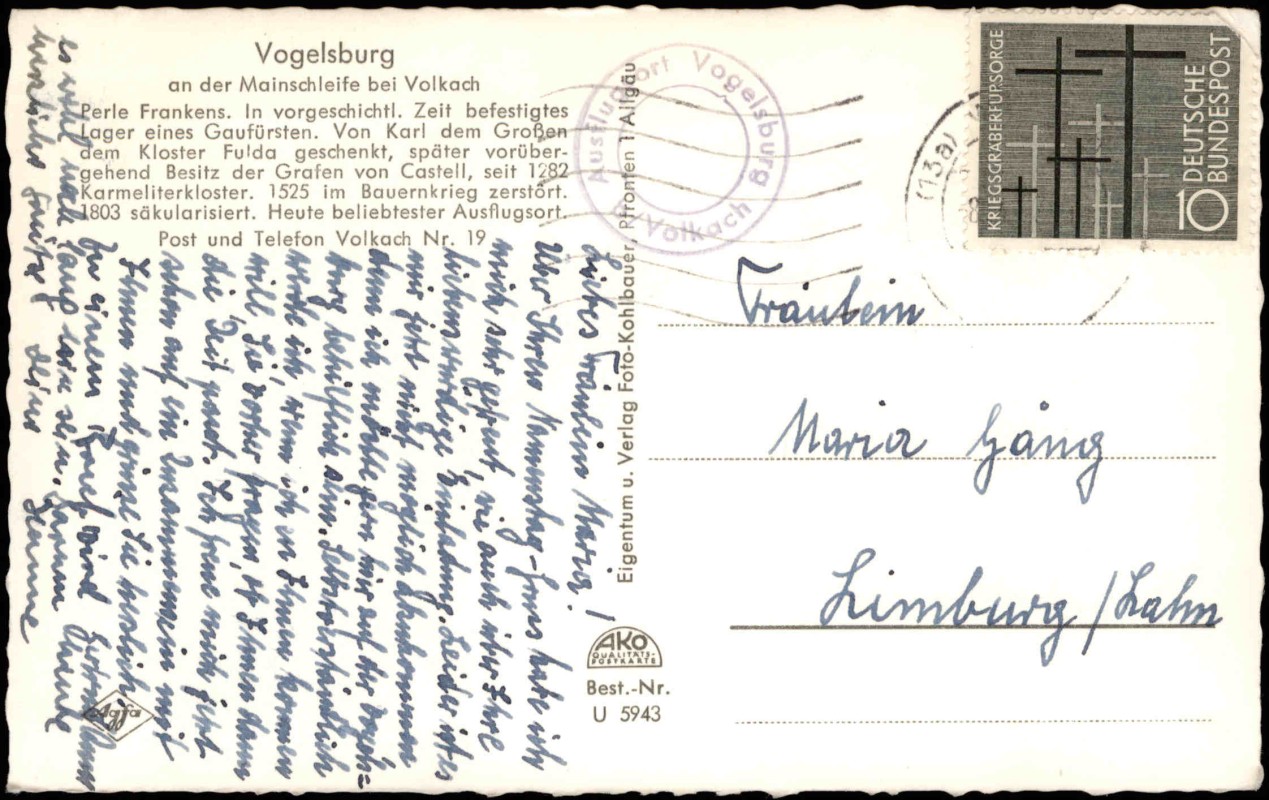 Vogelsburg
an der Mainschleife bei Volkach
Perle Frankens. In vorgeschichtl. Zeit befestigtes
Lager eines Gaufürsten. Von Karl dem Großen
dem Kloster Fulda geschenkt, später vorüber-
gehend Besitz der Grafen von Castell, seit 1282
Karmeliterkloster. 1525 im Bauernkrieg zerstört.
1803 säkularisiert. Heute beliebtester Ausflugsort.
Post und Telefon Volkach Nr. 19
Liebes Fräulein Maria!
Über Ihren Namenstag-Gruß habe ich
mich sehr gefreut, wie auch über Ihre
liebenswürdige Einladung. Leider ist es
mir jetzt nicht möglich
denn ich
behilflich sein. Selbstverständlich
werde ich, wenn ich zu Ihnen kommen
will Sie vorher fragen, ob Ihnen dann
die Zeit passt. Ich freue mich jetzt
schon auf ein Zusammensein mit
Ihnen und grüsse Sie herzlich
Zu einem wird
es wohl noch lang sein. Darum
herzliche Grüße
Eigentum u. Verlag Foto-Kohlbauer, Pfronten 1 Allgäu
AKO
QUALITÄTS-
POSTKARTE
Best.-Nr.
U 5943
Agfa
Ausflugsort Vogelsburg
b/Volkach
(13a)
KRIEGSGRÄBERFÜRSORGE
10 DEUTSCHE
BUNDESPOST
Fräulein
Maria Gäng
Limburg/Lahn